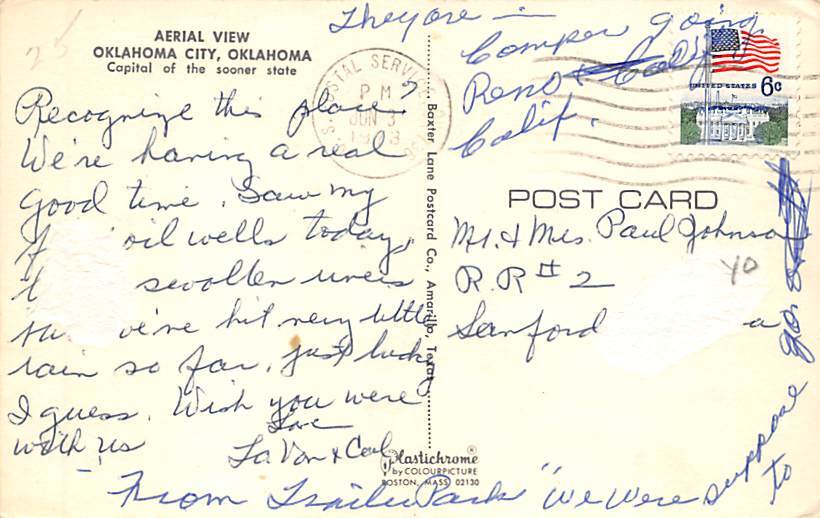 AERIAL VIEW
OKLAHOMA CITY, OKLAHOMA
Capital of the sooner state
Recognize this place?
We're having a real
good time. Saw my
oil wells today,
swollen rivers
we've hit very little
rain so far, just lucky
I guess. Wish you were
with us
Love
La Von & Carl
Baxter Lane Postcard Co., Amarillo, Texas
Plastichrome®
by COLOURPICTURE
BOSTON, MASS. 02130
U.S. POSTAL SERVICE
PM
JUN 3
UNITED STATES 6c
POST CARD
Mr. & Mrs. Paul Johnson
R.R # 2
Sanford
a
yo
25
From Trailer Park "We were suppose
to go
They are in
Camper going
Reno & Calif
Calif.